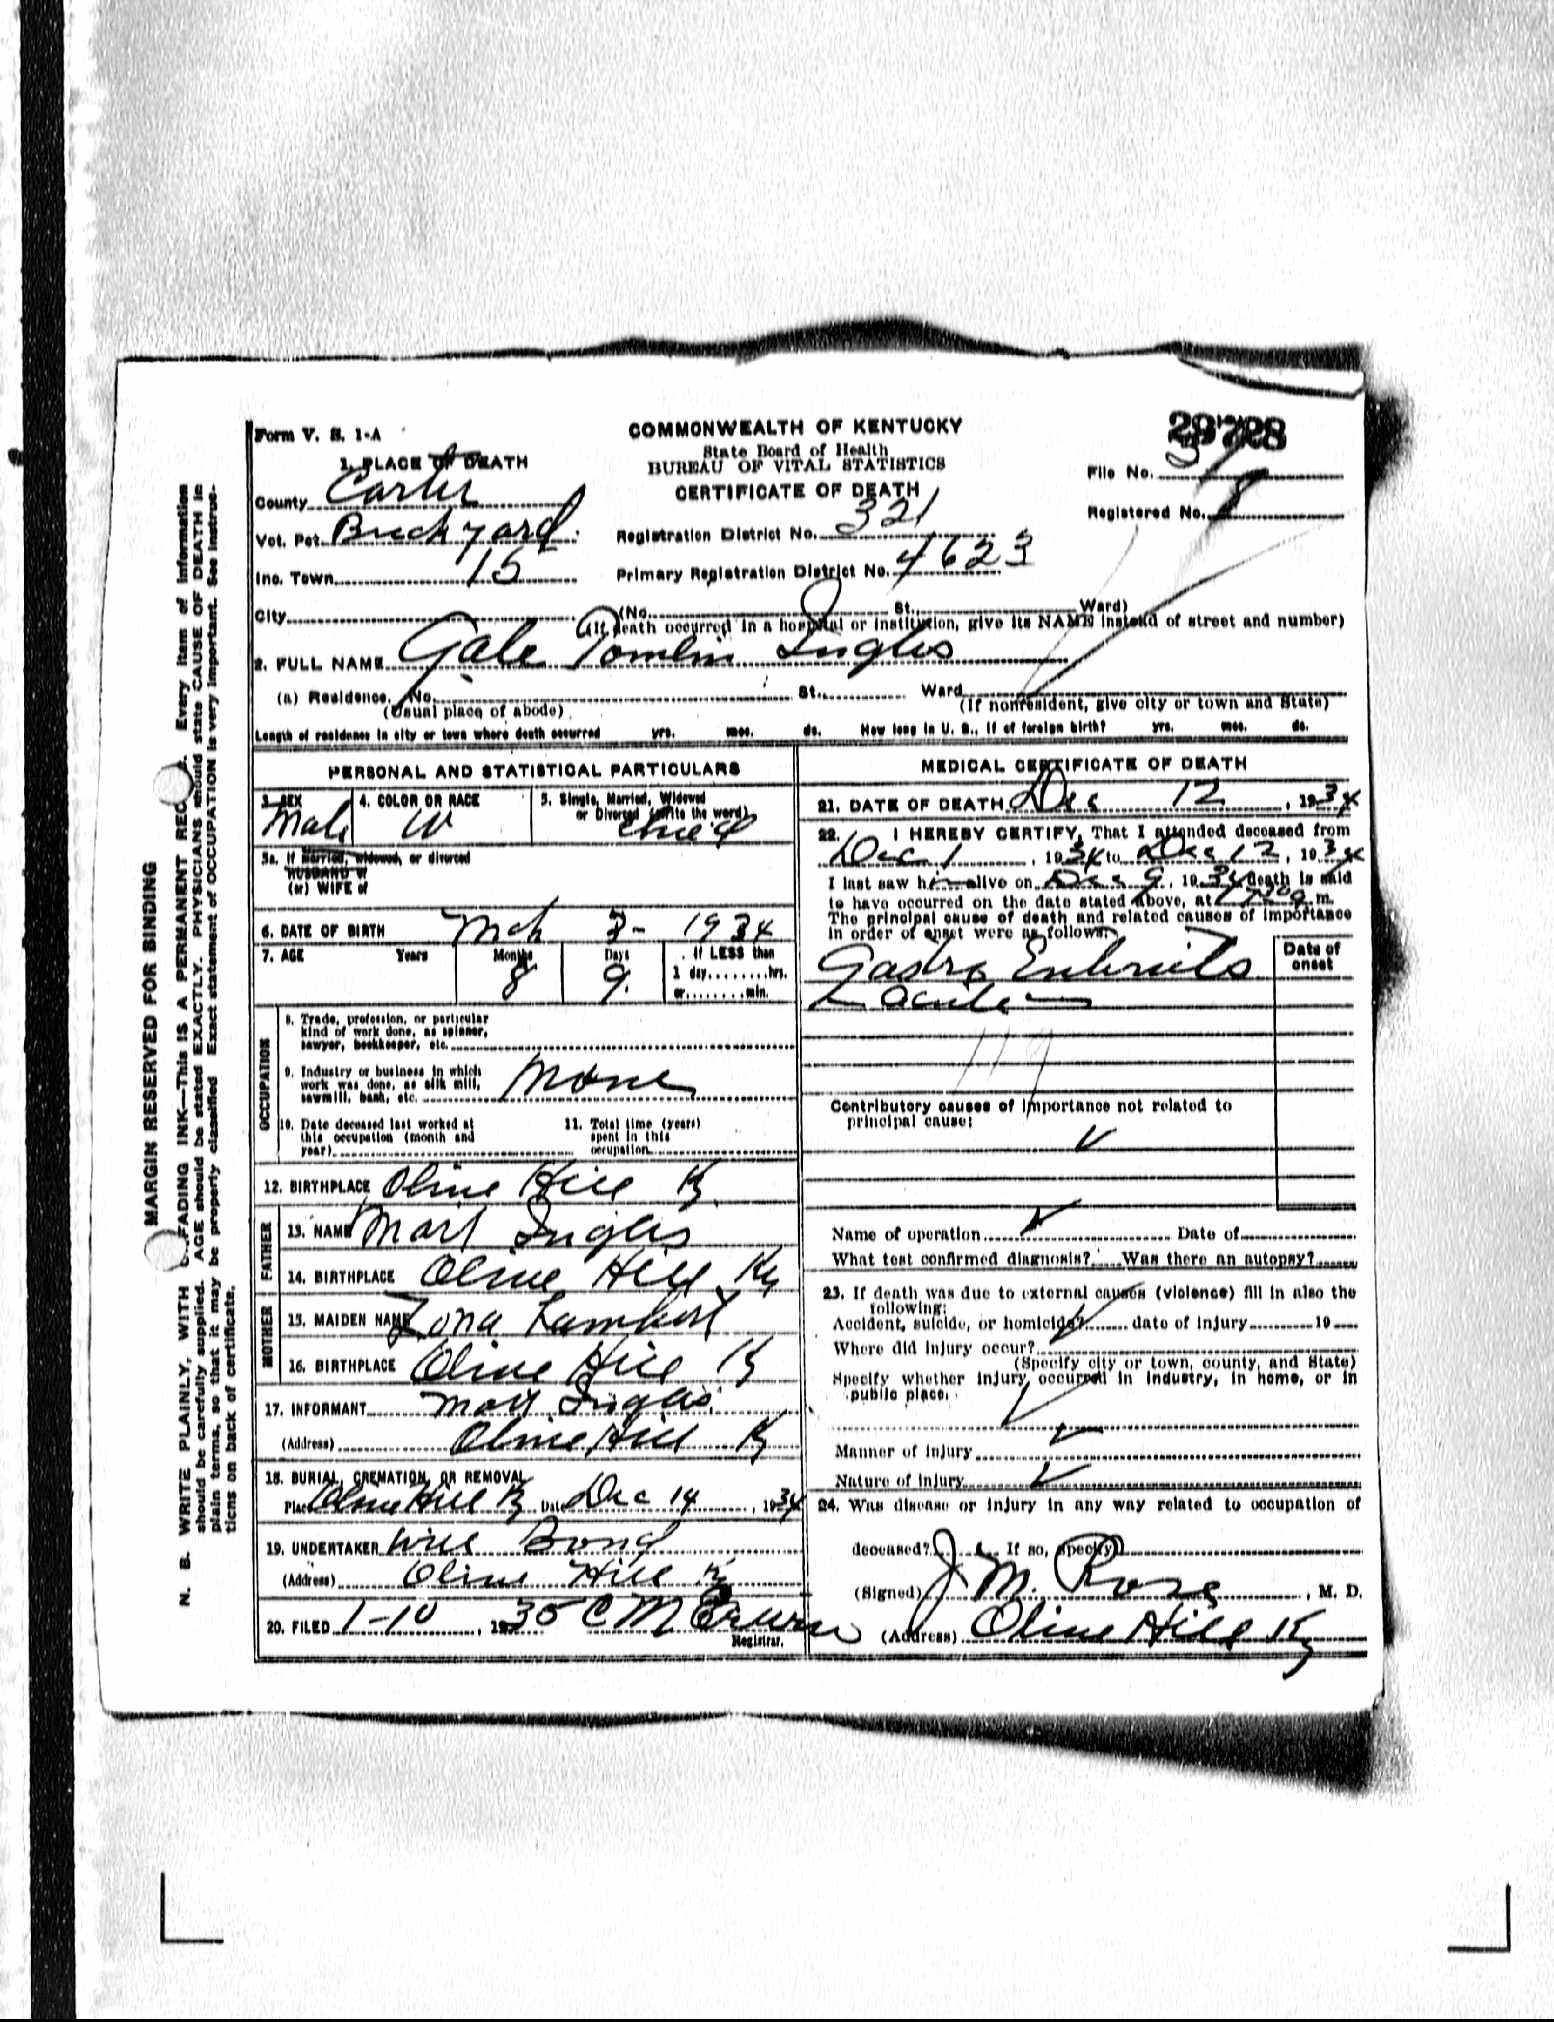 Form V. S. 1-A
COMMONWEALTH OF KENTUCKY
State Board of Health
BUREAU OF VITAL STATISTICS
CERTIFICATE OF DEATH
29728
File No.
Registered No. 8
1. PLACE OF DEATH
County Carter
Vot. Pct. Brickyard
Registration District No. 321
Inc. Town 15
Primary Registration District No. 4623
City (No. St., Ward)
(If death occurred in a hospital or institution, give its NAME instead of street and number)
2. FULL NAME Gale Tomlin Inglis
(a) Residence. No. St., Ward
(Usual place of abode) (If nonresident, give city or town and State)
Length of residence in city or town where death occurred yrs. mos. ds. How long in U. S., if of foreign birth? yrs. mos. ds.
PERSONAL AND STATISTICAL PARTICULARS
3. SEX 4. COLOR OR RACE 5. Single, Married, Widowed
or Divorced (write the word)
Male W Child
5a. If married, widowed, or divorced
HUSBAND of
(or) WIFE of
6. DATE OF BIRTH Mch 3- 1934
7. AGE Years Months Days If LESS than
8 9. 1 day,........hrs.
or........min.
OCCUPATION
8. Trade, profession, or particular
kind of work done, as spinner,
sawyer, bookkeeper, etc.
9. Industry or business in which
work was done, as silk mill,
sawmill, bank, etc. None
10. Date deceased last worked at
this occupation (month and
year)
11. Total time (years)
spent in this
occupation
12. BIRTHPLACE Olive Hill Ky.
FATHER
13. NAME Mart Inglis
14. BIRTHPLACE Olive Hill Ky
MOTHER
15. MAIDEN NAME Zona Lambert
16. BIRTHPLACE Olive Hill Ky
17. INFORMANT Mart Inglis
(Address) Olive Hill Ky
18. BURIAL, CREMATION, OR REMOVAL
Place Olive Hill Ky Date Dec 14, 1934
19. UNDERTAKER Will Bond
(Address) Olive Hill Ky
20. FILED 1-10, 1935 C M Erwin
Registrar.
MEDICAL CERTIFICATE OF DEATH
21. DATE OF DEATH Dec 12, 1934
22. I HEREBY CERTIFY, That I attended deceased from
Dec 1, 1934 to Dec 12, 1934
I last saw him alive on Dec 9, 1934 death is said
to have occurred on the date stated above, at m.
The principal cause of death and related causes of importance
in order of onset were as follows:
Date of
onset
Gastro Enteritis
acute
119
Contributory causes of importance not related to
principal cause:
Name of operation Date of
What test confirmed diagnosis? Was there an autopsy?
23. If death was due to external causes (violence) fill in also the
following:
Accident, suicide, or homicide? date of injury 19
Where did injury occur?
(Specify city or town, county, and State)
Specify whether injury occurred in industry, in home, or in
public place.
Manner of injury
Nature of injury
24. Was disease or injury in any way related to occupation of
deceased? If so, specify
(Signed) J. M. Rose, M. D.
(Address) Olive Hill Ky
MARGIN RESERVED FOR BINDING
N. B. WRITE PLAINLY, WITH UNFADING INK—THIS IS A PERMANENT RECORD. Every item of information
should be carefully supplied. AGE should be stated EXACTLY. PHYSICIANS should state CAUSE OF DEATH in
plain terms, so that it may be properly classified. Exact statement of OCCUPATION is very important. See instruc-
tions on back of certificate.